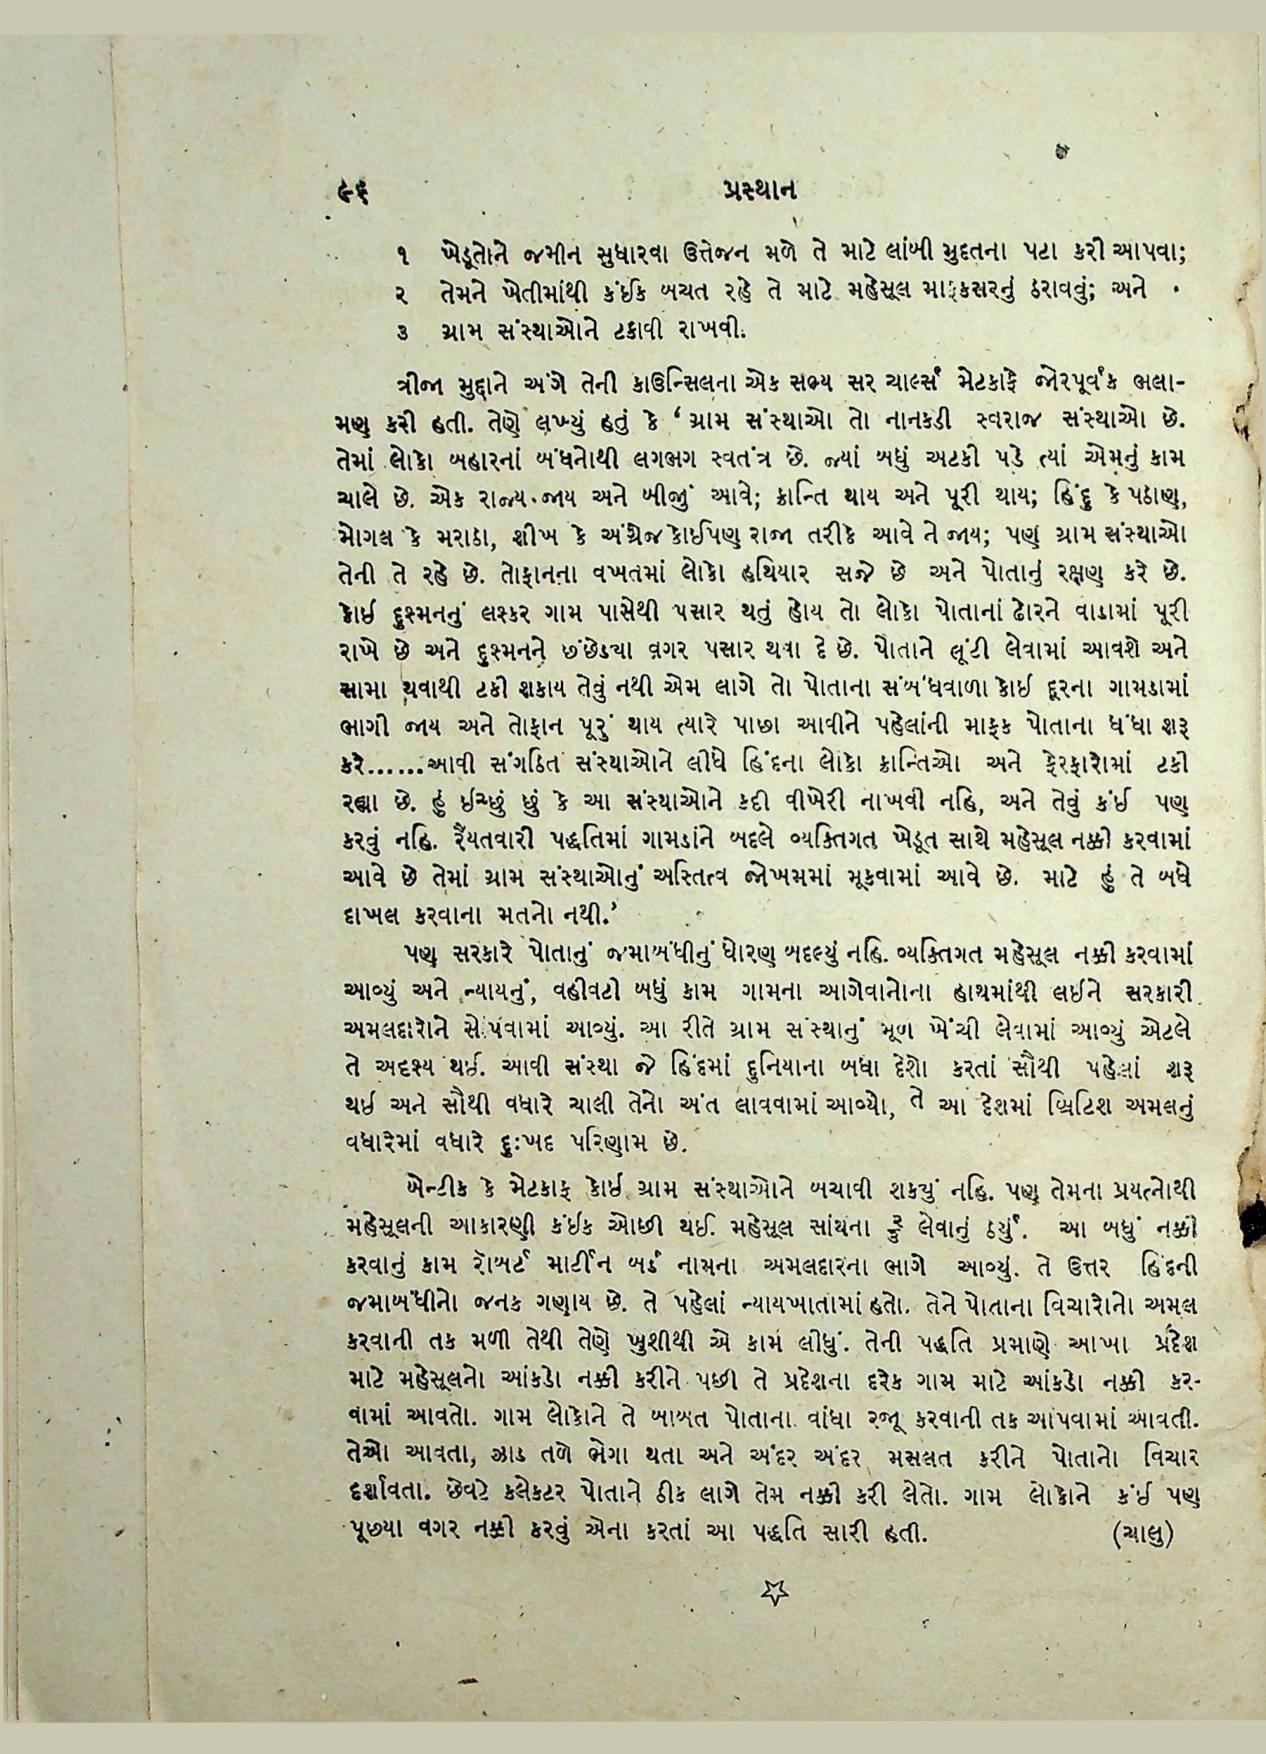 ૯૬ પ્રસ્થાન
૧ ખેડૂતોને જમીન સુધારવા ઉત્તેજન મળે તે માટે લાંબી મુદતના પટા કરી આપવા;
૨ તેમને ખેતીમાંથી કંઈક બચત રહે તે માટે મહેસૂલ માફકસરનું ઠરાવવું; અને
૩ ગ્રામ સંસ્થાઓને ટકાવી રાખવી.
ત્રીજા મુદ્દાને અંગે તેની કાઉન્સિલના એક સભ્ય સર ચાર્લ્સ મેટકાફે જોરપૂર્વક ભલા-
મણ કરી હતી. તેણે લખ્યું હતું કે ‘ ગ્રામ સંસ્થાઓ તો નાનકડી સ્વરાજ સંસ્થાઓ છે.
તેમાં લોકો બહારનાં બંધનોથી લગભગ સ્વતંત્ર છે. જ્યાં બધું અટકી પડે ત્યાં એમનું કામ
ચાલે છે. એક રાજ્ય જાય અને બીજું આવે; ક્રાન્તિ થાય અને પૂરી થાય; હિંદુ કે પઠાણ,
મોગલ કે મરાઠા, શીખ કે અંગ્રેજ કોઈપણ રાજા તરીકે આવે ને જાય; પણ ગ્રામ સંસ્થાઓ
તેની તે રહે છે. તોફાનના વખતમાં લોકો હથિયાર સજે છે અને પોતાનું રક્ષણ કરે છે.
કોઈ દુશ્મનનું લશ્કર ગામ પાસેથી પસાર થતું હોય તો લોકો પોતાનાં ઢોરને વાડામાં પૂરી
રાખે છે અને દુશ્મનને છંછેડ્યા વગર પસાર થવા દે છે. પોતાને લૂંટી લેવામાં આવશે અને
સામા થવાથી ટકી શકાય તેવું નથી એમ લાગે તો પોતાના સંબંધવાળા કોઈ દૂરના ગામડામાં
ભાગી જાય અને તોફાન પૂરું થાય ત્યારે પાછા આવીને પહેલાંની માફક પોતાના ધંધા શરૂ
કરે......આવી સંગઠિત સંસ્થાઓને લીધે હિંદના લોકો ક્રાન્તિઓ અને ફેરફારોમાં ટકી
રહ્યા છે. હું ઈચ્છું છું કે આ સંસ્થાઓને કદી વીખેરી નાખવી નહિ, અને તેવું કંઈ પણ
કરવું નહિ. રૈયતવારી પદ્ધતિમાં ગામડાંને બદલે વ્યક્તિગત ખેડૂત સાથે મહેસૂલ નક્કી કરવામાં
આવે છે તેમાં ગ્રામ સંસ્થાઓનું અસ્તિત્વ જોખમમાં મૂકવામાં આવે છે. માટે હું તે બધે
દાખલ કરવાના મતનો નથી.’
પણ સરકારે પોતાનું જમાબંધીનું ધોરણ બદલ્યું નહિ. વ્યક્તિગત મહેસૂલ નક્કી કરવામાં
આવ્યું અને ન્યાયનું, વહીવટી બધું કામ ગામના આગેવાનોના હાથમાંથી લઈને સરકારી
અમલદારોને સોંપવામાં આવ્યું. આ રીતે ગ્રામ સંસ્થાનું મૂળ ખેંચી લેવામાં આવ્યું એટલે
તે અદૃશ્ય થઈ. આવી સંસ્થા જે હિંદમાં દુનિયાના બધા દેશો કરતાં સૌથી પહેલાં શરૂ
થઈ અને સૌથી વધારે ચાલી તેનો અંત લાવવામાં આવ્યો, તે આ દેશમાં બ્રિટિશ અમલનું
વધારેમાં વધારે દુઃખદ પરિણામ છે.
બેન્ટીક કે મેટકાફ કોઈ ગ્રામ સંસ્થાઓને બચાવી શક્યું નહિ. પણ તેમના પ્રયત્નોથી
મહેસૂલની આકારણી કંઈક ઓછી થઈ. મહેસૂલ સાંથના ૨/૩ લેવાનું ઠર્યું. આ બધું નક્કી
કરવાનું કામ રૉબર્ટ માર્ટીન બર્ડ નામના અમલદારના ભાગે આવ્યું. તે ઉત્તર હિંદની
જમાબંધીનો જનક ગણાય છે. તે પહેલાં ન્યાયખાતામાં હતો. તેને પોતાના વિચારોનો અમલ
કરવાની તક મળી તેથી તેણે ખુશીથી એ કામ લીધું. તેની પદ્ધતિ પ્રમાણે આખા પ્રદેશ
માટે મહેસૂલનો આંકડો નક્કી કરીને પછી તે પ્રદેશના દરેક ગામ માટે આંકડો નક્કી કર-
વામાં આવતો. ગામ લોકોને તે બાબત પોતાના વાંધા રજૂ કરવાની તક આપવામાં આવતી.
તેઓ આવતા, ઝાડ તળે ભેગા થતા અને અંદર અંદર મસલત કરીને પોતાનો વિચાર
દર્શાવતા. છેવટે કલેકટર પોતાને ઠીક લાગે તેમ નક્કી કરી લેતો. ગામ લોકોને કંઈ પણ
પૂછ્યા વગર નક્કી કરવું એના કરતાં આ પદ્ધતિ સારી હતી. (ચાલુ)